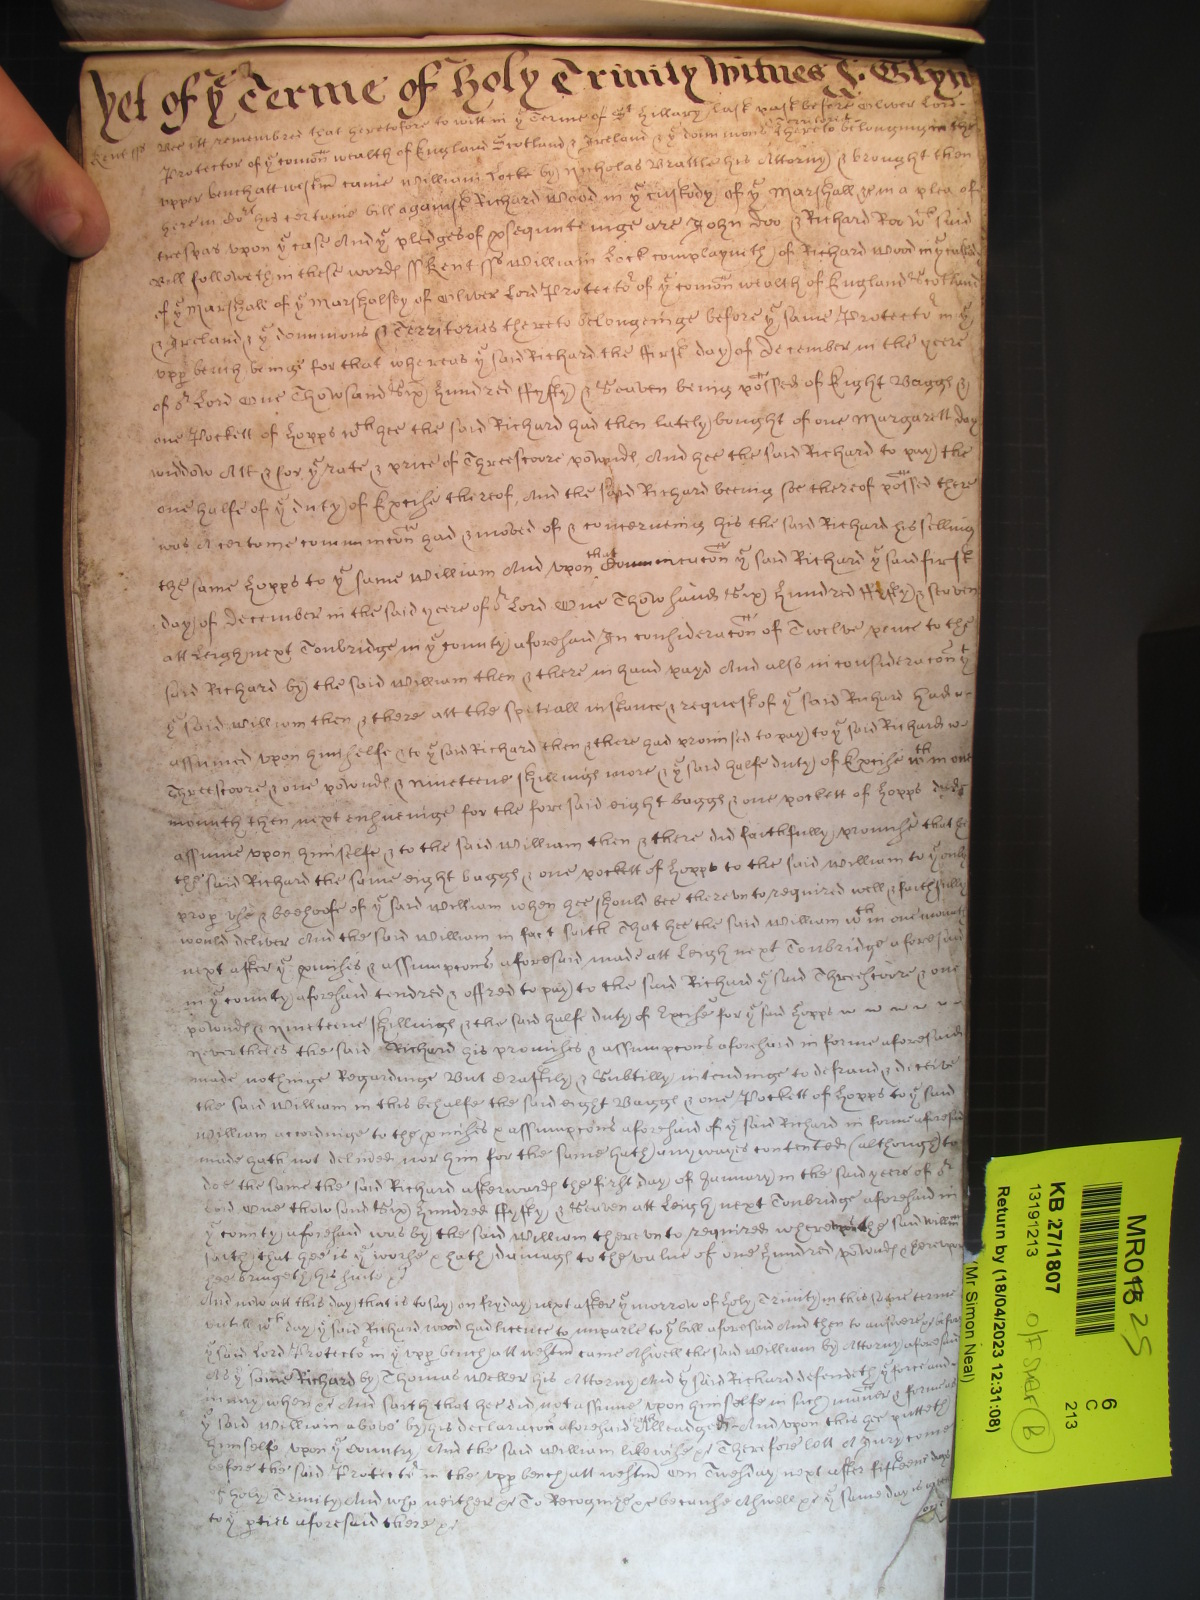 Yet of ye Terme of Holy Trinity Witnes J: Glyn
Kent ss Bee itt remembred that heretofore to witt in ye Terme of St Hillary last past before Oliver Lord
Protector of ye comon wealth of England Scotland & Ireland & ye dominions & Territories thereto belonginge in the
upper bench att westmr came William Locke by Nicholas Brattle his Attorny & brought then
here in Cort his certaine bill against Richard Wood in ye custody of ye Marshall &c in a plea of
trespas upon ye case And ye pledges of psequuteinge are John Doo & Richard Roo wch said
Bill followeth in these words ss Kent ss William Lock complayneth of Richard Wood in ye custody
of ye Marshall of ye Marshalsey of Oliver Lord Protector of ye comon wealth of England Scotland
& Ireland & ye dominions & Territories thereto belongeinge before ye same Protector in ye
uppr bench beinge for that whereas ye said Richard the first day of December in the yeere
of or Lord One Thowsand Six Hundred ffyfty & Seaven being possed of Eight Baggs &
one Pockett of Hopps wch hee the said Richard had then lately bought of one Margarett Day
widdow Att & for ye rate & price of Threescoore pownds And hee the said Richard to pay the
one halfe of ye duty of Excise thereof, And the said Richard beeing soe thereof possed there
was A certaine communicacon had & moved of & concerneing his the said Richard his selling
the same Hopps to ye same William And upon that Communicacon ye said Richard ye said first
day of December in the said yeere of or Lord One Thowsand Six Hundred ffyfty & seaven
att Leigh next Tonbridge in ye county aforesaid In consideracon of Twelve pence to the
said Richard by the said William then & there in hand payd And also in consideracon yt
ye said William then & there att the speciall instance & request of ye said Richard had
assumed upon himselfe & to ye said Richard then & there had promised to pay to ye said Richard
Threescoore & one pownds & nineteene shillings more & ye said halfe duty of Excise wthin one
mounth then next ensueinge for the foresaid eight baggs & one pockett of Hopps did
assume upon himselfe & to the said William then & there did faithfully promise that he
the said Richard the same eight baggs & one pockett of Hopps to the said William to ye only
propr use & beehoofe of ye said William when hee should bee thereunto required well & faithfully
would deliver And the said William in fact saith That hee the said William wthin one mounth
next after ye pmises & assumpcons aforesaid made att Leigh next Tonbridge aforesaid
in ye county aforesaid tendred & offred to pay to the said Richard ye said Threescoore & one
pownds & nineteene shillings & the said halfe duty of Excise for ye said Hopps
nevertheles the said Richard his promises & assumpcons aforesaid in forme aforesaid
made nothinge Regardinge But Craftily & Subtilly intendinge to defraud & deceive
the said William in this behalfe the said eight Baggs & one Pockett of Hopps to ye said
William accordinge to the pmises & assumpcons aforesaid of ye said Richard in forme aforesaid
made hath not delivered nor him for the same hath any wayes contented (although to
doe the same the said Richard afterwards the first day of January in the said yeere of or
Lord One thowsand Six Hundred ffyfty & Seaven att Leigh next Tonbridge aforesaid in
ye county aforesaid was by the said William thereunto required whereupon the said William
saith that hee is ye worse & hath damage to the value of one Hundred pownds & thereupon
hee bringeth his suite &c
And now att this day that is to say on fryday next after ye morrow of Holy Trinity in this same terme
untill wch day ye said Richard Wood had licence to imparle to ye bill aforesaid And then to answere &c before
ye said Lord Protector in ye uppr bench att westmr came Aswell the said William by Attorny aforesaid
As ye same Richard by Thomas Weller his Attorny And ye said Richard defendeth ye force and
iniury when &c And saith that hee did not assume upon himselfe in such maner & forme as
ye said William above by his declaracon aforesaid hath Alleadged And upon this hee putteth
himselfe upon ye Country And the said William likewise &c Therefore lett A Jury come
before the said Protector in the uppr bench att westmr On Tuesday next after fifteene dayes
of Holy Trinity And who neither &c To Recognize &c because Aswell &c ye same day is given
to ye pties aforesaid there &c
MR018 25
6
C
213
KB 27/1807
13191213
Off Staff (B)
Return by (18/04/2023 12:31:08)
(Mr Simon Neal)